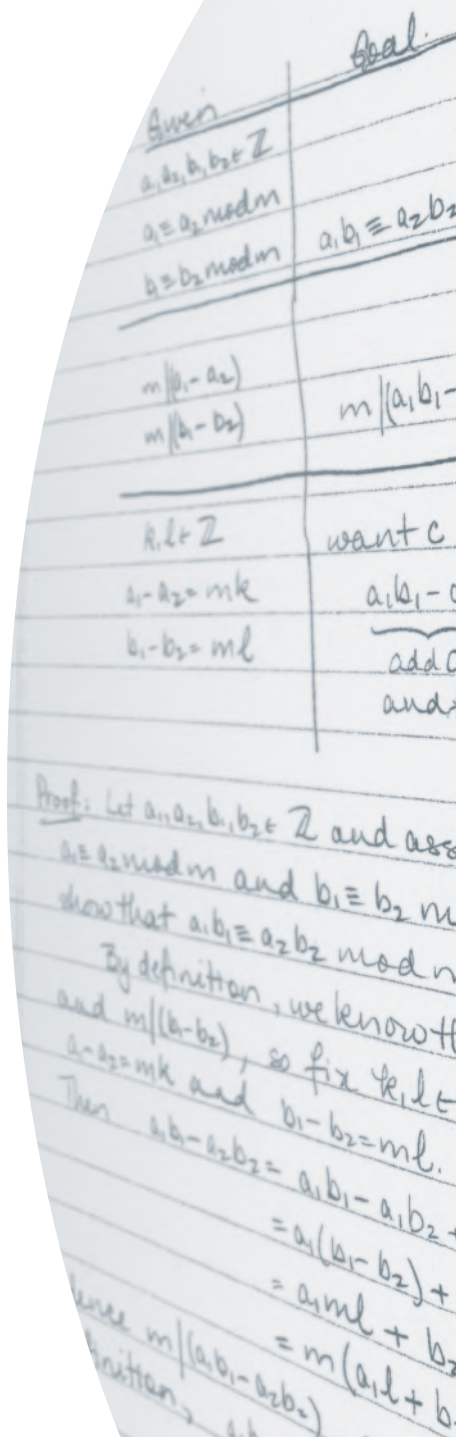 Given Goal.
a₁,a₂,b₁,b₂∈ℤ
a₁≡a₂ mod m
b₁≡b₂ mod m a₁b₁≡a₂b₂
m|(a₁-a₂)
m|(b₁-b₂) m|(a₁b₁-
k,l∈ℤ want
a₁-a₂=mk a₁b₁-
b₁-b₂=ml add
and
Proof: Let a₁,a₂,b₁,b₂∈ℤ and
a₁≡a₂ mod m and b₁≡b₂
show that a₁b₁≡a₂b₂ mod
By definition, we know
and m|(b₁-b₂), so fix k,l∈
a₁-a₂=mk and b₁-b₂=ml.
Then a₁b₁-a₂b₂= a₁b₁-a₁b₂+
=a₁(b₁-b₂)+
=a₁ml+b₂
=m(a₁l+b
m|(a₁b₁-a₂b₂)